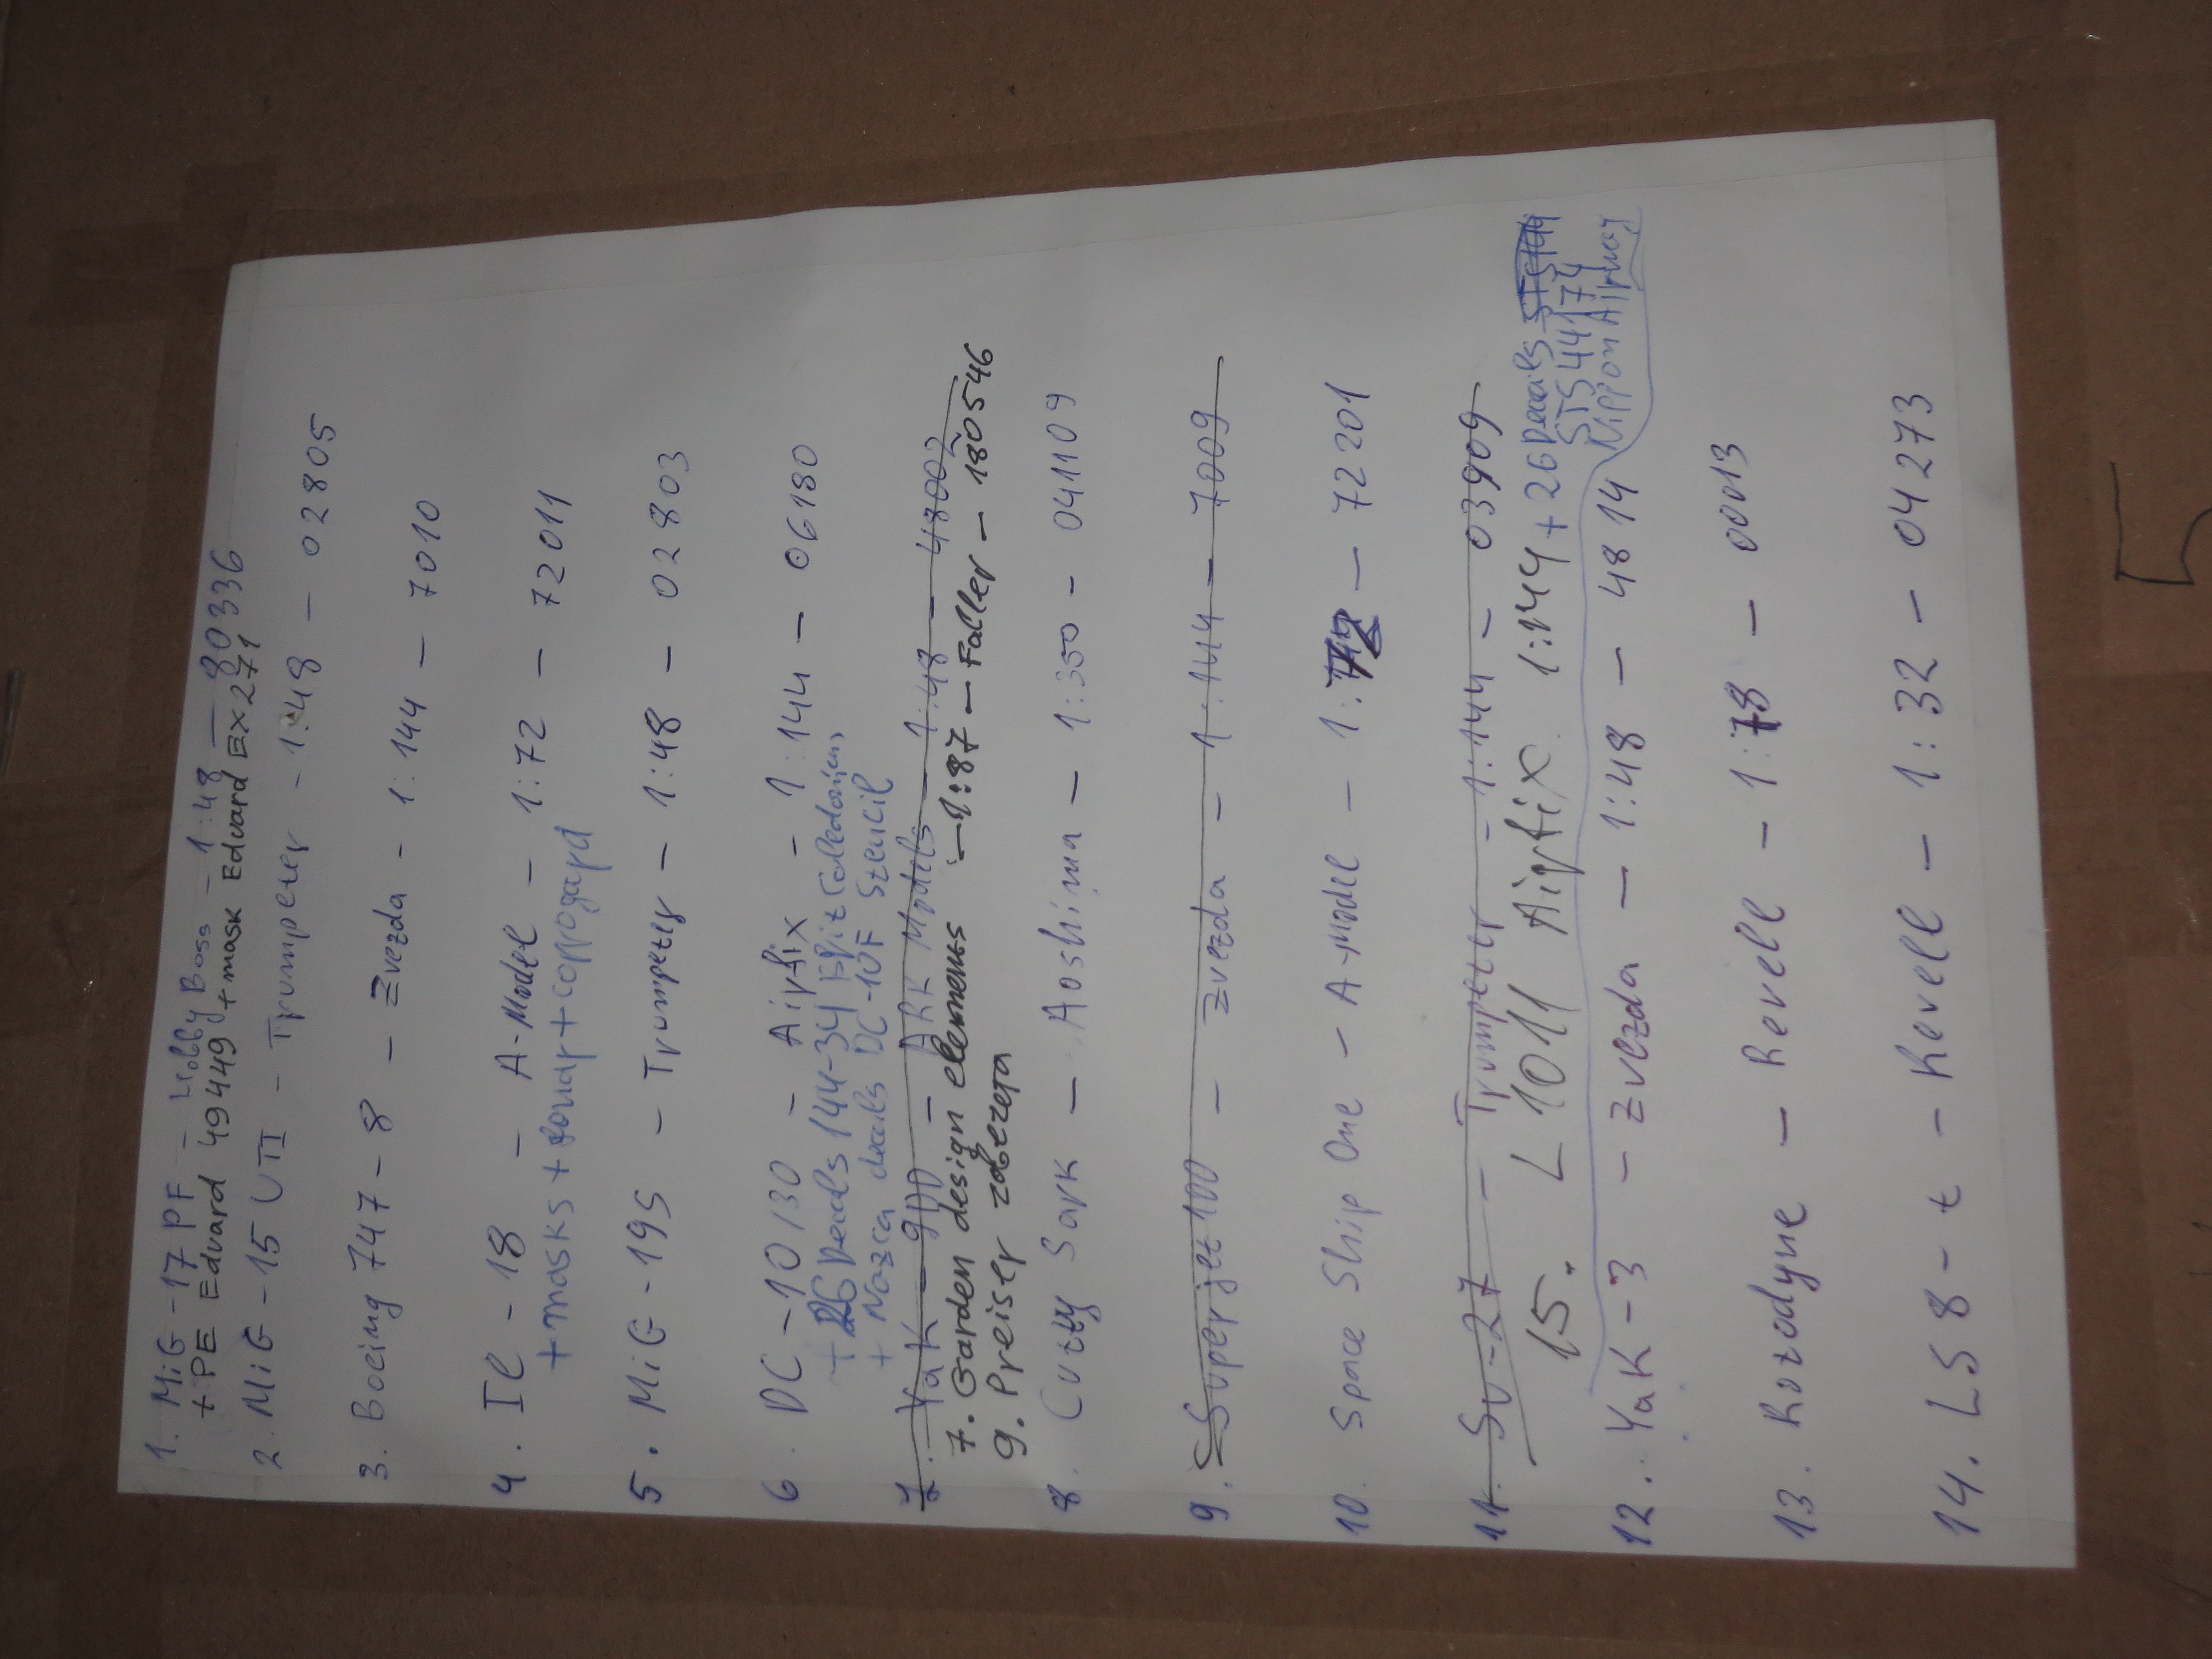 1. MiG-17 PF - Hobby Boss - 1:48 - 80336
+ PE Eduard 49449 + mask Eduard EX271
2. MiG-15 UTI - Trumpeter - 1:48 - 02805
3. Boeing 747-8 - Zvezda - 1:144 - 7010
4. Il-18 - A-Model - 1:72 - 72011
+ masks +
5. MiG-19S - Trumpeter - 1:48 - 02803
6. DC-10/30 - Airfix - 1:144 - 06180
+ 26 Decals 144-34
+ Nazca decals DC-10F Stencil
7. Yak-9DD - ARK Models - 1:48 - 48002
7. Garden design elements - 1:87 - Faller - 180546
9. Preiser
8. Cutty Sark - Aoshima - 1:350 - 041109
9. Superjet 100 - Zvezda - 1:144 - 7009
10. Space Ship One - A-Model - 1:72 - 72201
11. Su-27 - Trumpeter - 1:144 - 03909
15. L 1011 Airfix 1:144 + 26 Decals
STS44174
Nippon Airway
12. Yak-3 - Zvezda - 1:48 - 4814
13. Rotodyne - Revell - 1:78 - 00013
14. LS8-t - Revell - 1:32 - 04273
5